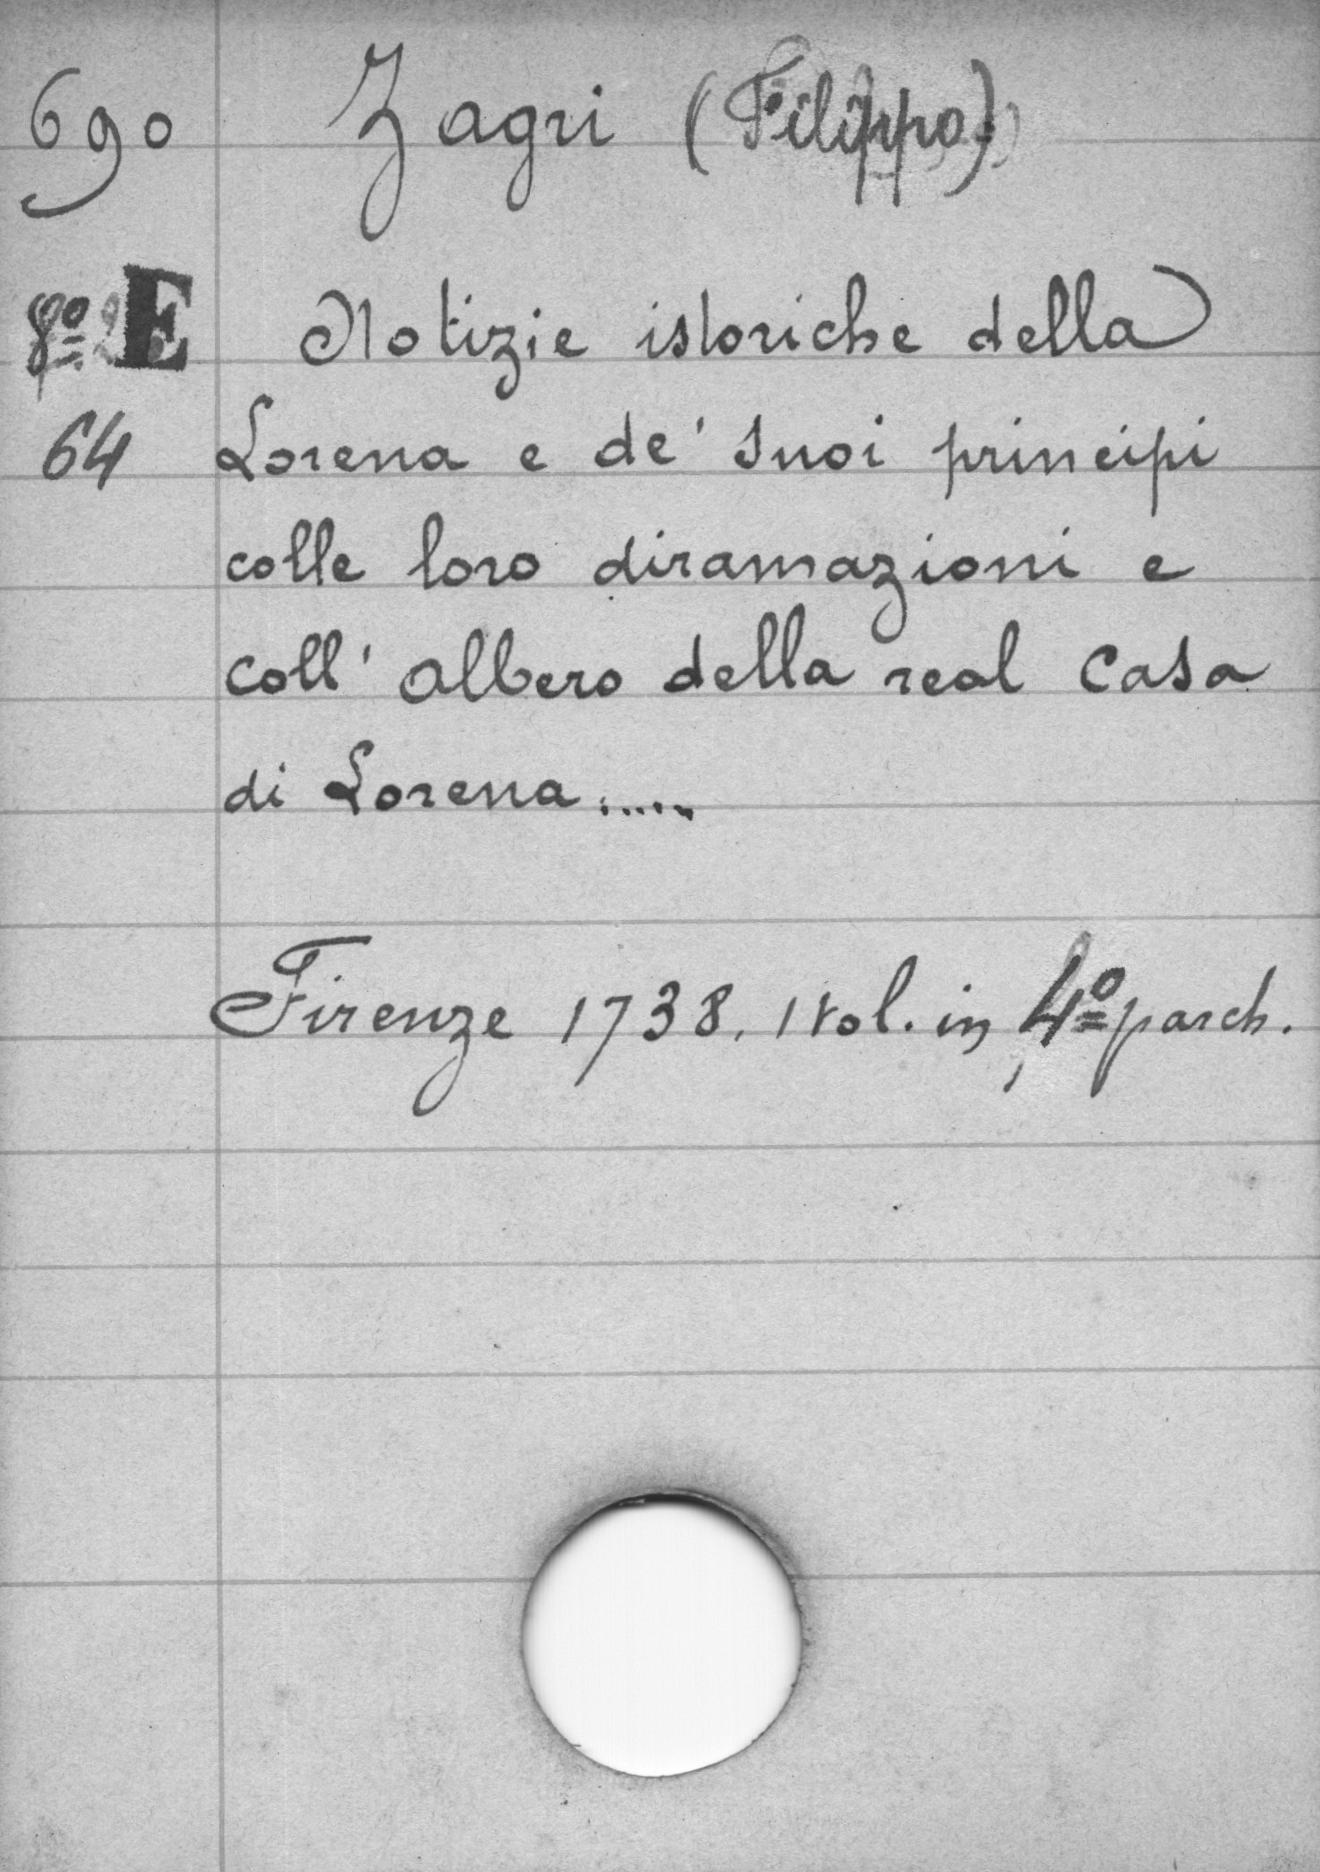 690 Zagri (Filippo)
8º E Notizie istoriche della
64 Lorena e de' suoi principi
colle loro diramazioni e
coll' albero della real Casa
di Lorena.....
Firenze 1738. 1 vol. in 4º parch.